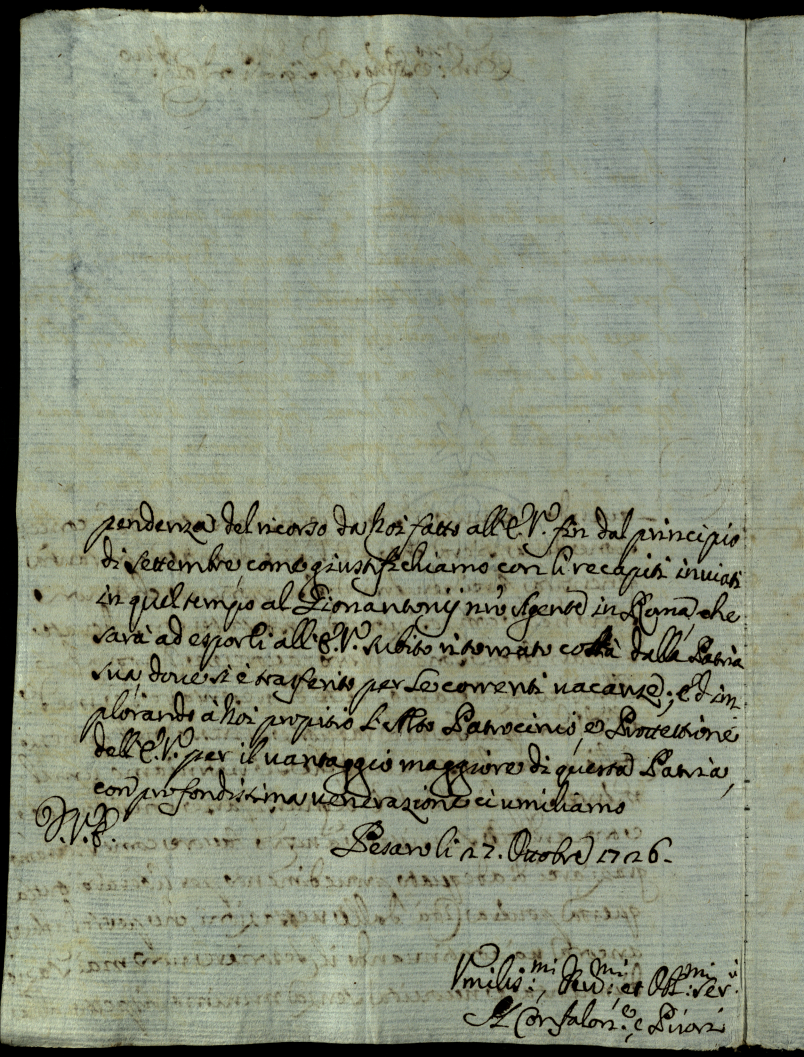 pendenza del ricorso da Noi fatto all'E. V. fin dal principio
di Settembre, come giustifichiamo con li recapiti inviati
in quel tempo al Lionantonij nr̃o Agente in Roma, che
sarà ad esporli all'E. V. subito ritornato costà dalla Patria
sua, dove si è trasferito per le correnti vacanze; ed im
plorando à Noi propitio l'alto Patrocinio, e Protettione
dell'E. V. per il vantaggio maggiore di questa Patria,
con profondissima venerazione ci umiliamo
D. V. E.
Pesaro li 27. Ottobre 1726.
Vmilis:mi, Div:mi et Obl:mi Ser:i
Il Confalon:e, e Priori